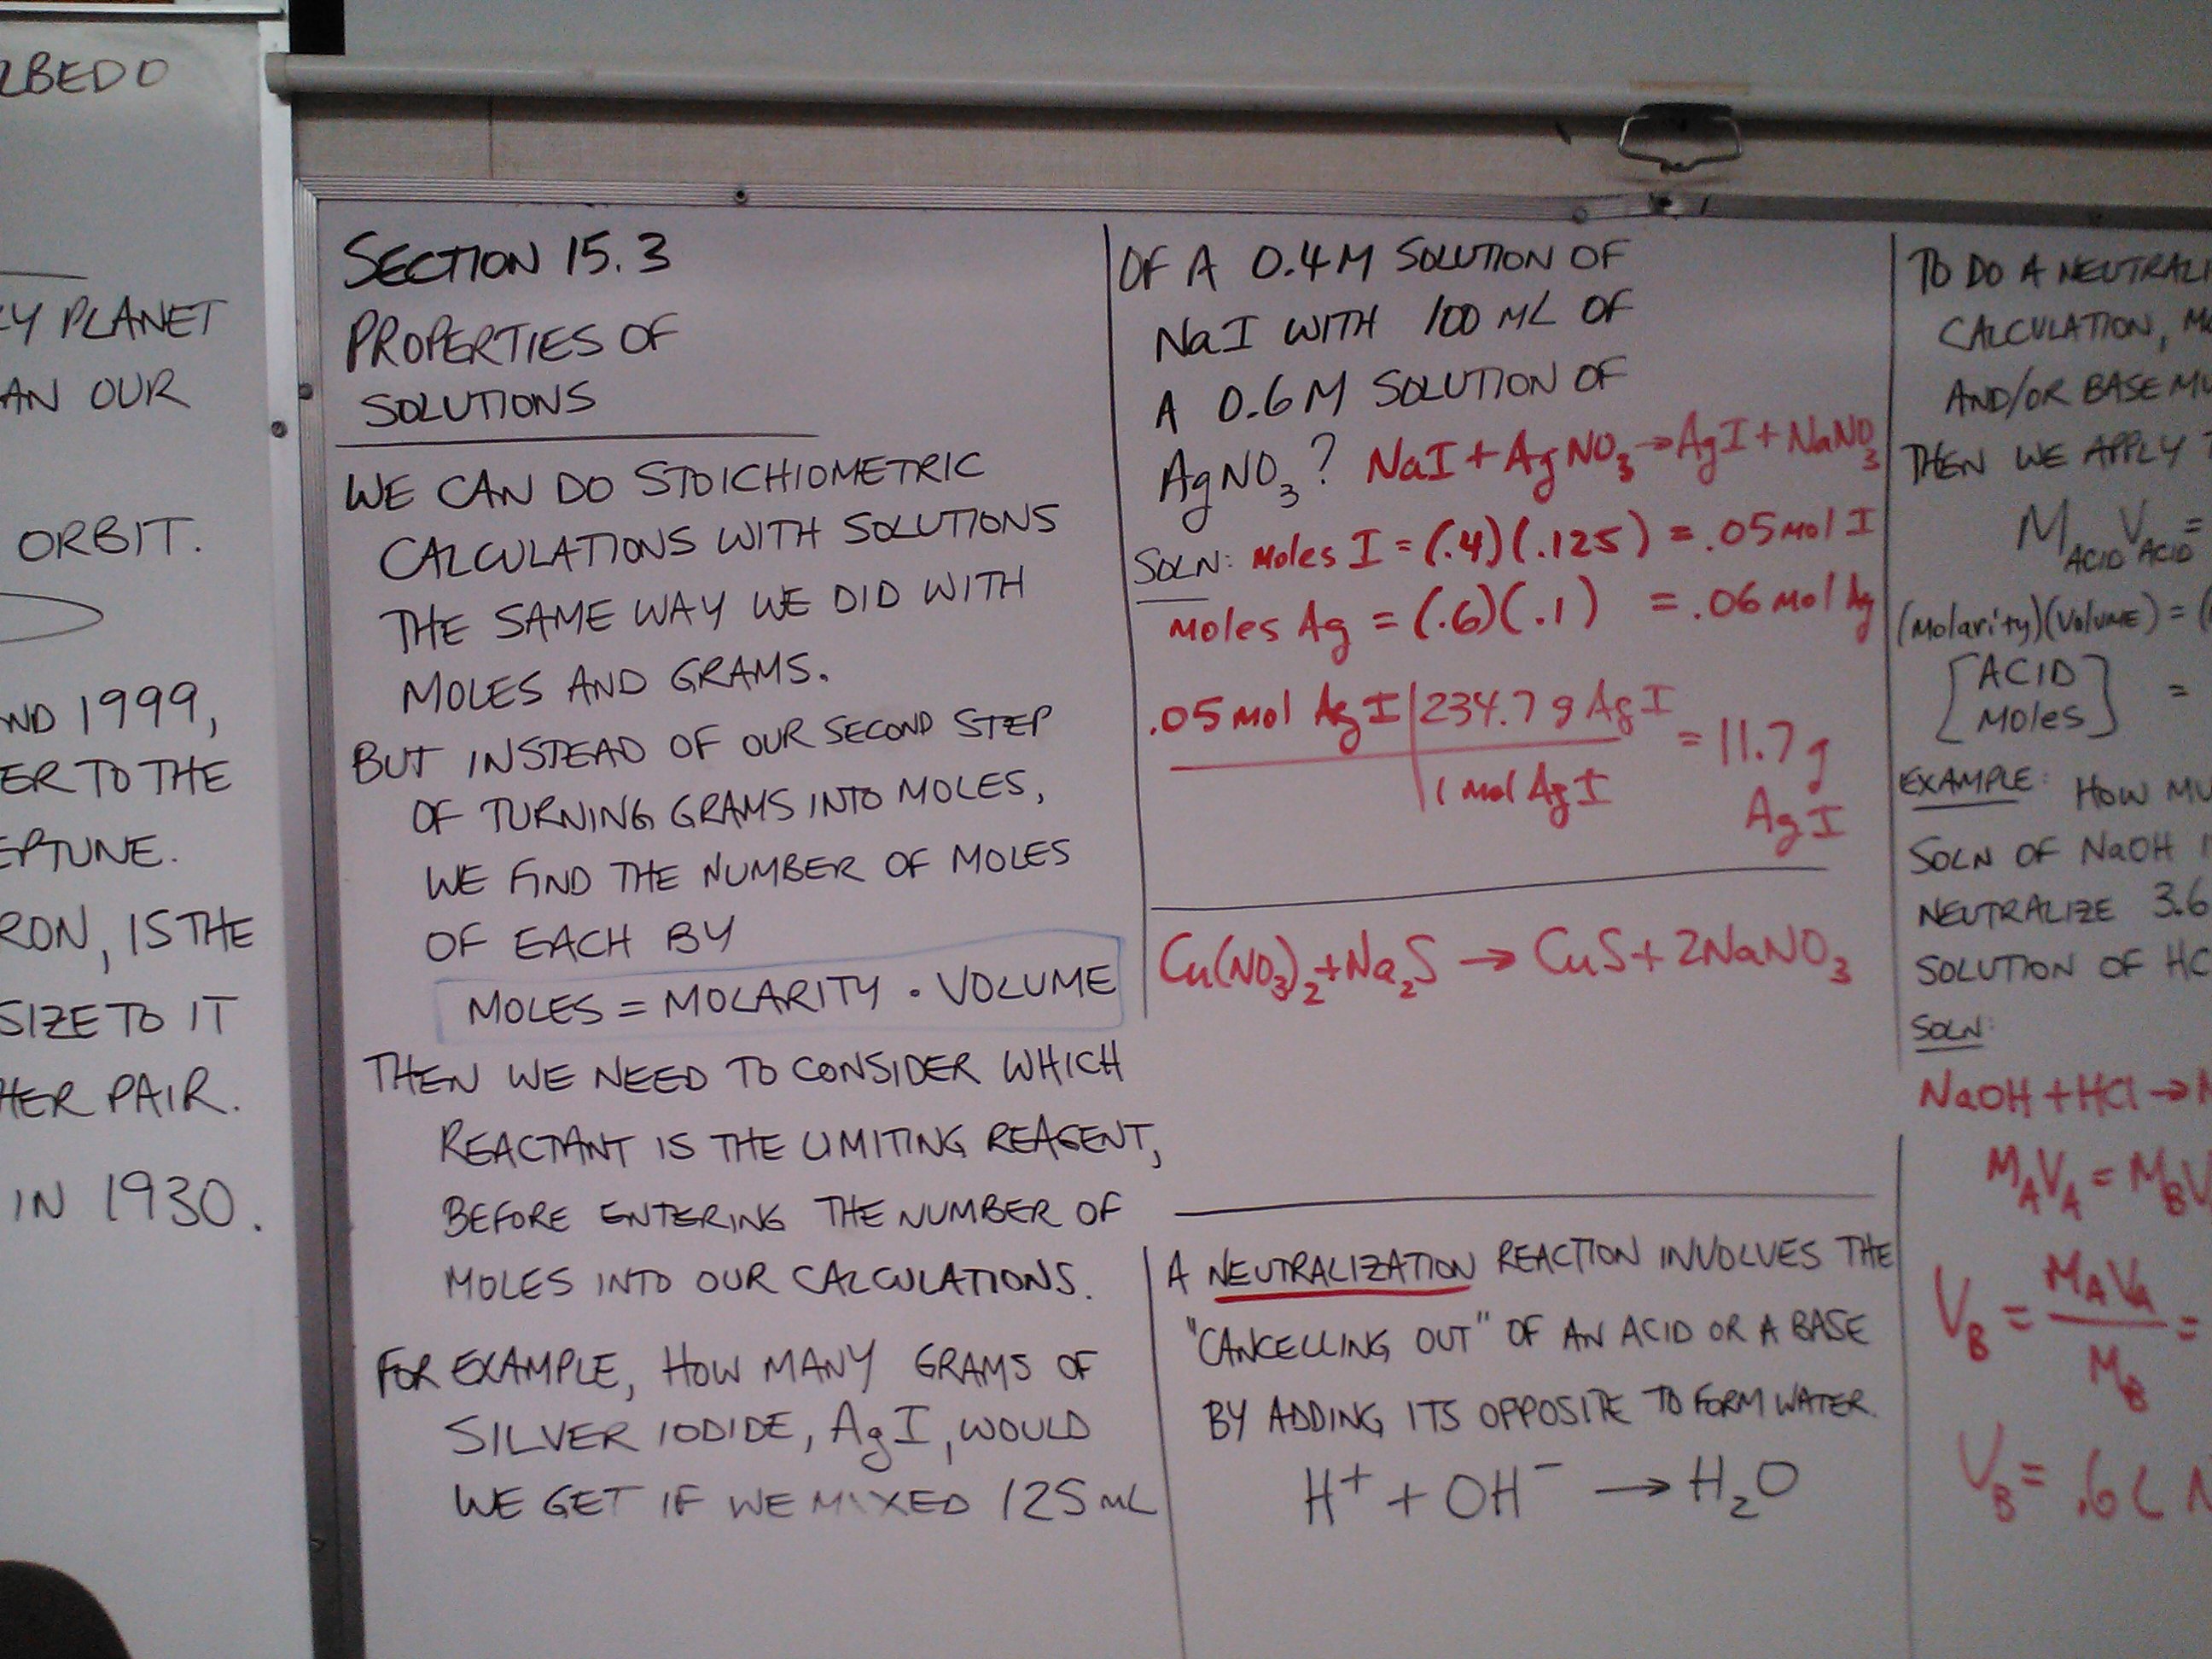 ORBIT.
AN OUR
ND 1999,
ER TO THE
IS THE
SIZE TO IT
PAIR.
IN 1930.
SECTION 15.3
PROPERTIES OF
SOLUTIONS
WE CAN DO STOICHIOMETRIC
CALCULATIONS WITH SOLUTIONS
THE SAME WAY WE DID WITH
MOLES AND GRAMS.
BUT INSTEAD OF OUR SECOND STEP
OF TURNING GRAMS INTO MOLES,
WE FIND THE NUMBER OF MOLES
OF EACH BY
MOLES = MOLARITY · VOLUME
THEN WE NEED TO CONSIDER WHICH
REACTANT IS THE LIMITING REAGENT,
BEFORE ENTERING THE NUMBER OF
MOLES INTO OUR CALCULATIONS.
FOR EXAMPLE, HOW MANY GRAMS OF
SILVER IODIDE, AgI, WOULD
WE GET IF WE MIXED 125 mL
OF A 0.4M SOLUTION OF
NaI WITH 100 ML OF
A 0.6M SOLUTION OF
AgNO₃? NaI + AgNO₃ → AgI + NaNO₃
SOLN: Moles I = (.4)(.125) = .05 mol I
moles Ag = (.6)(.1) = .06 mol Ag
.05 mol AgI | 234.7 g AgI = 11.7 g
1 mol AgI AgI
Cu(NO₃)₂ + Na₂S → CuS + 2NaNO₃
A NEUTRALIZATION REACTION INVOLVES THE
"CANCELLING OUT" OF AN ACID OR A BASE
BY ADDING ITS OPPOSITE TO FORM WATER.
H⁺ + OH⁻ → H₂O
TO DO A NEUTRALI
CALCULATION,
AND/OR BASE
THEN WE APPLY
M ACID V ACID =
(Molarity)(Volume) = (
[ACID Moles] =
EXAMPLE: HOW MU
SOLN OF NaOH
NEUTRALIZE 3.6
SOLUTION OF HC
SOLN:
NaOH + HCl →
M_A V_A = M_B V
V_B = M_A V_A / M_B =
V_B = .6 L